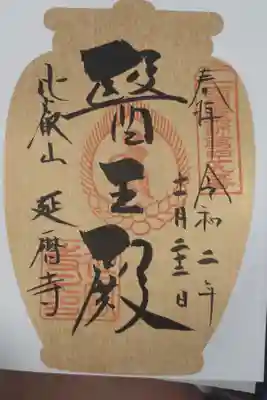 奉拝 令和二年
十一月二十三日
醫王殿
比叡山 延暦寺